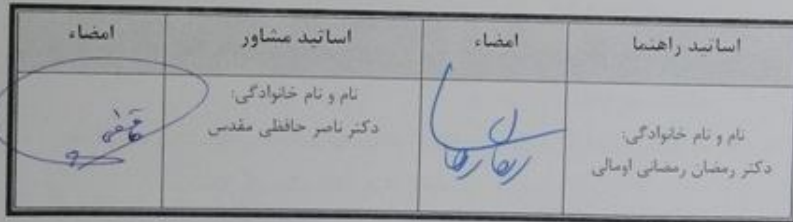 اساتید راهنما
امضاء
اساتید مشاور
امضاء
نام و نام خانوادگی:
دکتر رمضان رمضانی اومالی
نام و نام خانوادگی:
دکتر ناصر حافظی مقدس